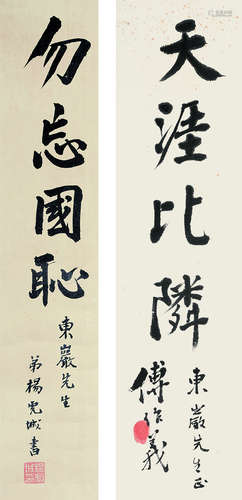 天涯比隣
東巖先生正
傅作義
勿忘國恥
東巖先生
弟楊虎城書